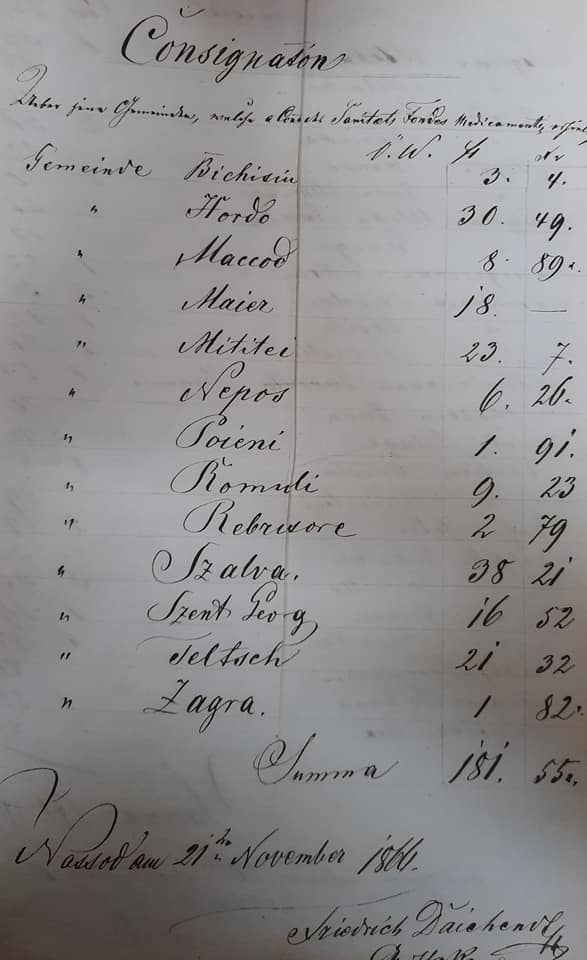 Consignation
Ueber jene Gemeinden, welche Sanitæts Fondes Medicamente
Ö. W. fl xr
Gemeinde Bichisiu 3. 4.
" Hordo 30. 49.
" Maccod 8. 89.
" Maier 18. —
" Mititei 23. 7.
" Nepos 6. 26.
" Poieni 1. 91.
" Romuli 9. 23
" Rebrisore 2 79
" Szalva. 38 21
" Szent Georg 16 52
" Teltsch 21 32
" Zagra. 1 82.
Summa 181. 55.
Nassod am 21ten November 1866.
Friedrich Daichendt